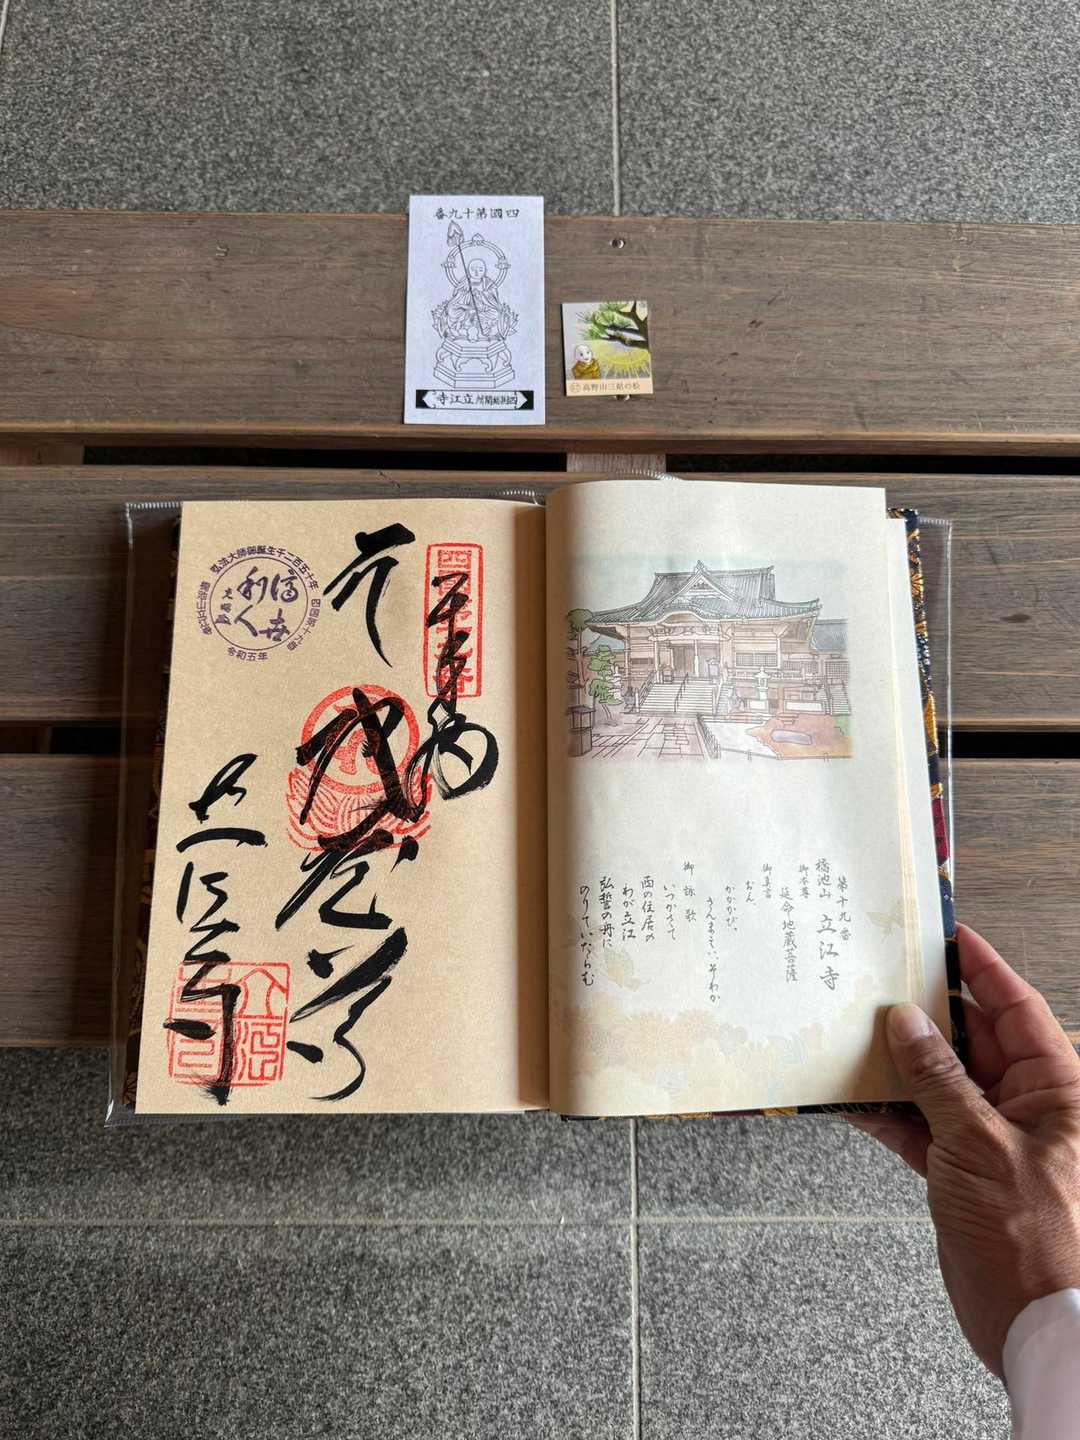 四國第十九番
四国総関所立江寺
高野山三鈷の松
弘法大師御誕生千二百五十年
四国第十九番
橋池山立江寺
令和五年
済世
利人
奉納
立江寺
第十九番
橋池山 立江寺
御本尊
延命地蔵菩薩
御真言
おん、
かかかび、
さんまえい、そわか
御詠歌
いつかさて
西の住居の
わが立江
弘誓の舟に
のりていたらむ